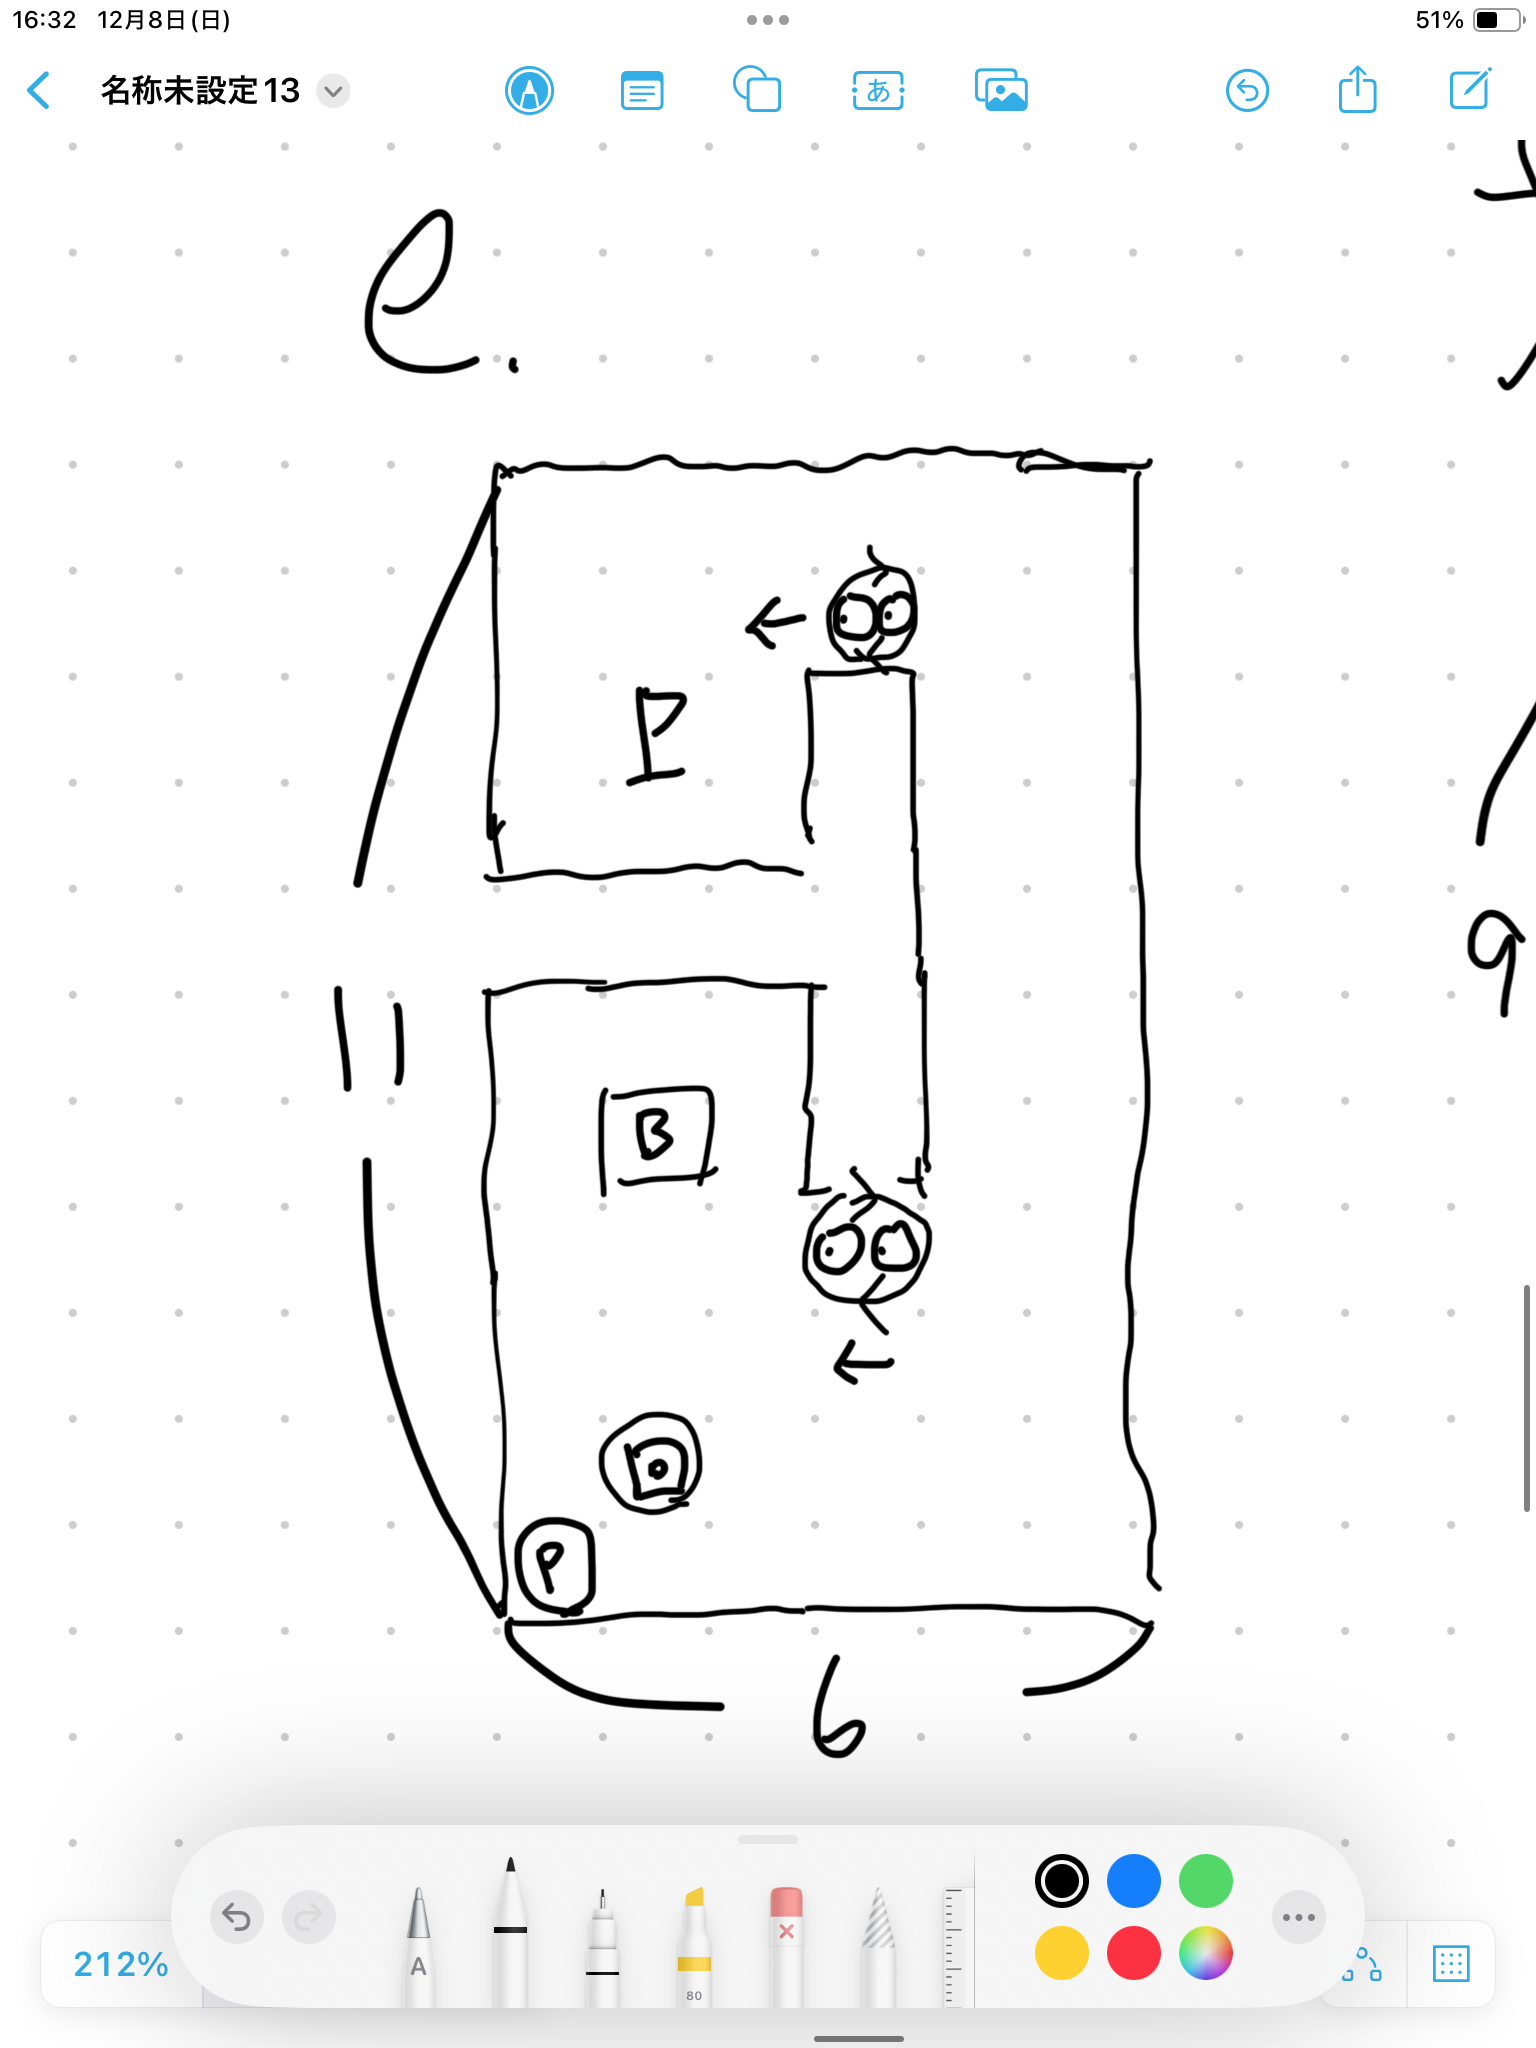 16:32 12月8日(日) 51%
名称未設定13
あ
e.
P
9
11
B
D
P
6
212%
A
80